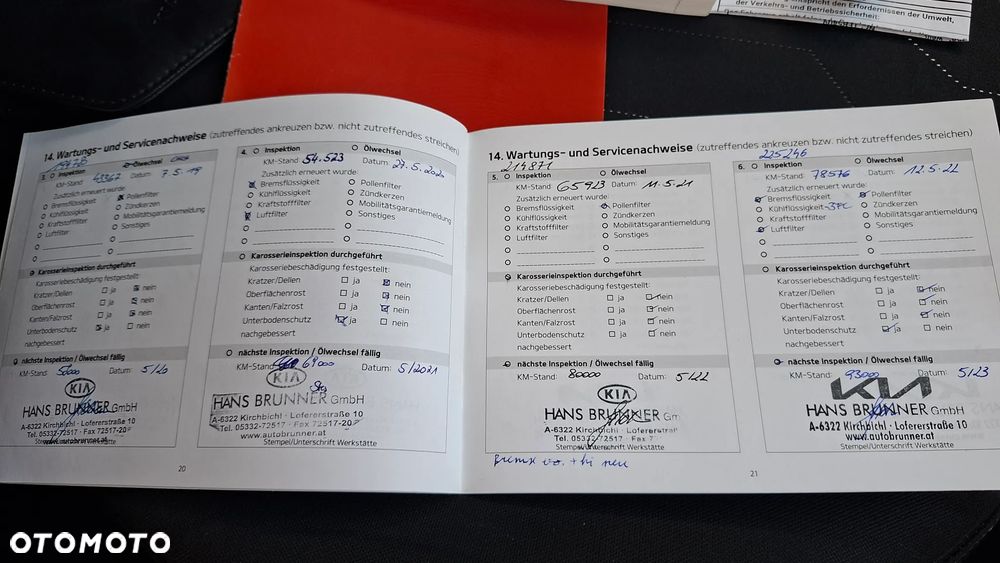 entspricht den Erfordernissen der Umwelt,
der Verkehrs- und Betriebssicherheit:
14. Wartungs- und Servicenachweise (zutreffendes ankreuzen bzw. nicht zutreffendes streichen)
3. Inspektion Ölwechsel
KM-Stand: 43362 Datum: 7.5.19
Zusätzlich erneuert wurde:
Bremsflüssigkeit Pollenfilter
Kühlflüssigkeit Zündkerzen
Kraftstofffilter Mobilitätsgarantiemeldung
Luftfilter Sonstiges
Karosserieinspektion durchgeführt
Karosseriebeschädigung festgestellt:
Kratzer/Dellen ja nein
Oberflächenrost ja nein
Kanten/Falzrost ja nein
Unterbodenschutz ja nein
nachgebessert
nächste Inspektion / Ölwechsel fällig
KM-Stand: Datum: 5/20
KIA
HANS BRUNNER GmbH
A-6322 Kirchbichl · Lofererstraße 10
Tel. 05332-72517 · Fax 72517-20
www.autobrunner.at
Stempel/Unterschrift Werkstätte
4. Inspektion Ölwechsel
KM-Stand: 54.523 Datum: 27.5.2020
Zusätzlich erneuert wurde:
Bremsflüssigkeit Pollenfilter
Kühlflüssigkeit Zündkerzen
Kraftstofffilter Mobilitätsgarantiemeldung
Luftfilter Sonstiges
Karosserieinspektion durchgeführt
Karosseriebeschädigung festgestellt:
Kratzer/Dellen ja nein
Oberflächenrost ja nein
Kanten/Falzrost ja nein
Unterbodenschutz ja nein
nachgebessert
nächste Inspektion / Ölwechsel fällig
KM-Stand: 69000 Datum: 5/2021
KIA
HANS BRUNNER GmbH
A-6322 Kirchbichl · Lofererstraße 10
Tel. 05332-72517 · Fax 72517-20
www.autobrunner.at
Stempel/Unterschrift Werkstätte
20
14. Wartungs- und Servicenachweise (zutreffendes ankreuzen bzw. nicht zutreffendes streichen)
214871
5. Inspektion Ölwechsel
KM-Stand: 65923 Datum: 11.5.21
Zusätzlich erneuert wurde:
Bremsflüssigkeit Pollenfilter
Kühlflüssigkeit Zündkerzen
Kraftstofffilter Mobilitätsgarantiemeldung
Luftfilter Sonstiges
Karosserieinspektion durchgeführt
Karosseriebeschädigung festgestellt:
Kratzer/Dellen ja nein
Oberflächenrost ja nein
Kanten/Falzrost ja nein
Unterbodenschutz ja nein
nachgebessert
nächste Inspektion / Ölwechsel fällig
KM-Stand: 80000 Datum: 5/22
KIA
HANS BRUNNER Gm
A-6322 Kirchbichl · Lofererstraß
Tel. 05332-72517 · Fax 7
www.autobrunner.at
Stempel/Unterschrift Werkstätte
225246
6. Inspektion Ölwechsel
KM-Stand: 78576 Datum: 12.5.22
Zusätzlich erneuert wurde:
Bremsflüssigkeit Pollenfilter
Kühlflüssigkeit Zündkerzen
Kraftstofffilter Mobilitätsgarantiemeldung
Luftfilter Sonstiges
Karosserieinspektion durchgeführt
Karosseriebeschädigung festgestellt:
Kratzer/Dellen ja nein
Oberflächenrost ja nein
Kanten/Falzrost ja nein
Unterbodenschutz ja nein
nachgebessert
nächste Inspektion / Ölwechsel fällig
KM-Stand: 93000 Datum: 5/23
KIA
HANS BRUNNER GmbH
A-6322 Kirchbichl · Lofererstraße 10
www.autobrunner.at
Stempel/Unterschrift Werkstätte
21
OTOMOTO